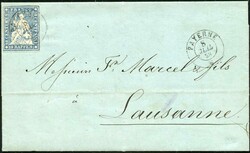 PAYERNE
Messieurs Fs. Marcel & fils
à
Lausanne